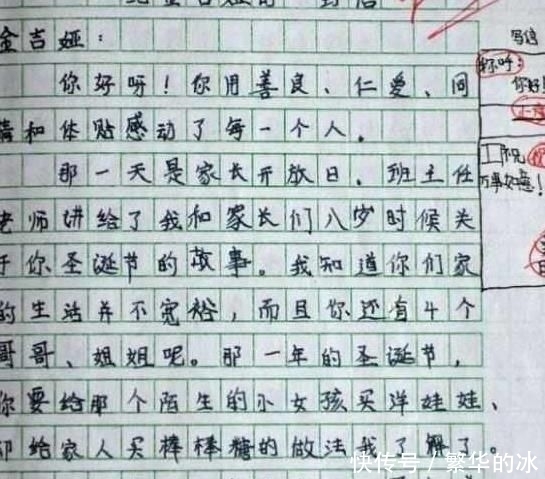 金吉娅：
你好呀！你用善良、仁爱、同
情和体贴感动了每一个人。
那一天是家长开放日。班主任
老师讲给了我和家长们八岁时候关
于你圣诞节的故事。我知道你们家
的生活并不宽裕，而且你还有4个
哥哥、姐姐呢。那一年的圣诞节，
你要给那个陌生的小女孩买洋娃娃、
却给家人买棒棒糖的做法我了解了。
写信
称呼：
你好！
正文
工作兄
万事如意！
快传号／繁华的冰